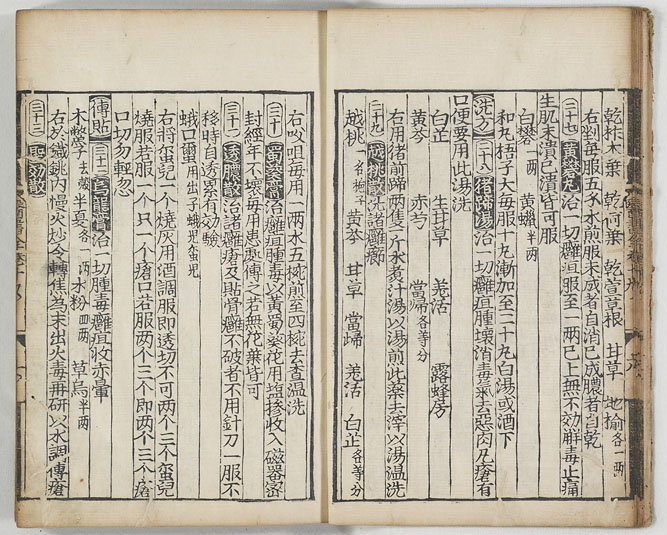 乾柞木葉 乾荷葉 乾萱草根 甘草 地榆各一兩
右剉每服五錢水煎服未成者自消已成膿者自乾
生肌未潰已潰皆可服
二十七 黃礬丸 治一切癰疽服至一兩已上無不効解毒止痛
白礬一兩 黃蠟半兩
和丸梧子大每服十丸漸加至二十丸白湯或酒下
洗方 二十八 猪蹄湯 治一切癰疽腫壞消毒氣去惡肉凡瘡有
口便要用此湯洗
白芷 生甘草 羌活 露蜂房
黃芩 赤芍 當歸各等分
右用猪前蹄兩隻一斤水煮汁湯以湯煎此藥去滓以湯溫洗
二十九 越桃散 洗諸癰癤
越桃名梔子 黃芩 甘草 當歸 羌活 白芷各等分
右㕮咀每用一兩水五椀煎至四椀去查溫洗
三十 蜀葵膏 治癰疽腫毒以黃蜀葵花用塩摻收入磁器密
封經年不壞每用患處傅之若無花葉皆可
三十一 透膿散 治諸癰瘡及貼骨癰不破者不用針刀一服不
移時自透累有効驗
蛾口蠒用出子蛾兒蠒兒
右將蠒兒一个燒灰用酒調服即透切不可两个三个蠒兒
燒服若服一个只一个瘡口若服两个三个即两个三个瘡
口切勿輕忽
傅貼 三十二 烏龍膏 治一切腫毒癰疽收赤暈
木鱉子去殼 半夏各二兩 水粉四兩 草烏半兩
右於鐵銚內慢火炒令轉焦為末出火毒再研以水調傅瘡
三十三 聖効散